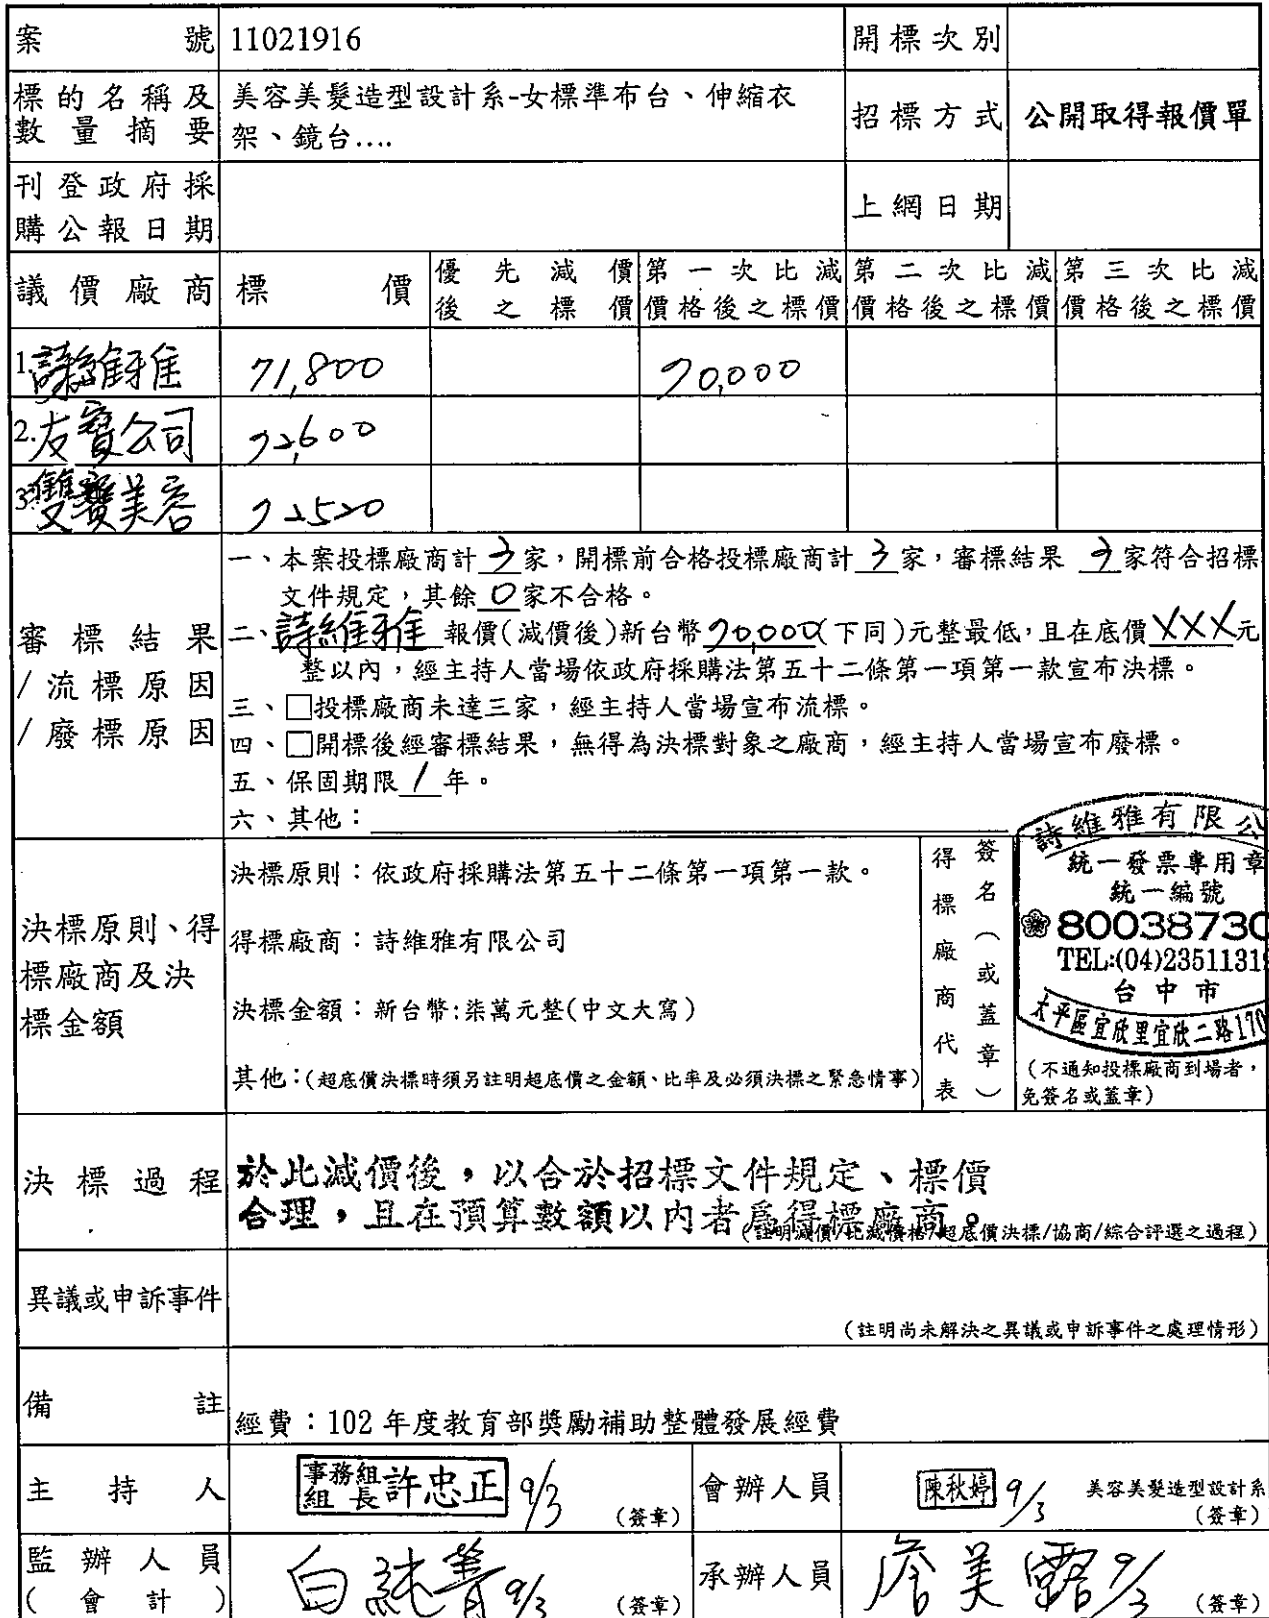 案號 11021916 開標次別
標的名稱及數量摘要 美容美髮造型設計系-女標準布台、伸縮衣
架、鏡台....
招標方式 公開取得報價單
刊登政府採
購公報日期
上網日期
議價廠商 標價 優先減價後之標價 第一次比減價格後之標價 第二次比減價格後之標價 第三次比減價格後之標價
1.詩維雅 71,800 70,000
2.友寶公司 72,600
3.雙寶美容 72520
審標結果
/流標原因
/廢標原因
一、本案投標廠商計 3 家，開標前合格投標廠商計 3 家，審標結果 3 家符合招標
文件規定，其餘 0 家不合格。
二、詩維雅 報價(減價後)新台幣70,000(下同)元整最低，且在底價XXX元
整以內，經主持人當場依政府採購法第五十二條第一項第一款宣布決標。
三、□投標廠商未達三家，經主持人當場宣布流標。
四、□開標後經審標結果，無得為決標對象之廠商，經主持人當場宣布廢標。
五、保固期限 1 年。
六、其他：
決標原則、得
標廠商及決
標金額
決標原則：依政府採購法第五十二條第一項第一款。
得標廠商：詩維雅有限公司
決標金額：新台幣:柒萬元整(中文大寫)
其他：(超底價決標時須另註明超底價之金額、比率及必須決標之緊急情事)
得標廠商代表
簽名（或蓋章）
詩維雅有限公
統一發票專用章
統一編號
80038730
TEL:(04)23511319
台中市
太平區宜欣里宜欣二路170
(不通知投標廠商到場者，
免簽名或蓋章)
決標過程
於此減價後，以合於招標文件規定、標價
合理，且在預算數額以內者為得標廠商。
(註明減價/比減價格/超底價決標/協商/綜合評選之過程)
異議或申訴事件
(註明尚未解決之異議或申訴事件之處理情形)
備註
經費：102 年度教育部獎勵補助整體發展經費
主持人 事務組組長 許忠正 9/3 (簽章) 會辦人員 陳秋婷 9/3 美容美髮造型設計系
(簽章)
監辦人員
(會計) 白純菁 9/3 (簽章) 承辦人員 詹美露 9/3 (簽章)